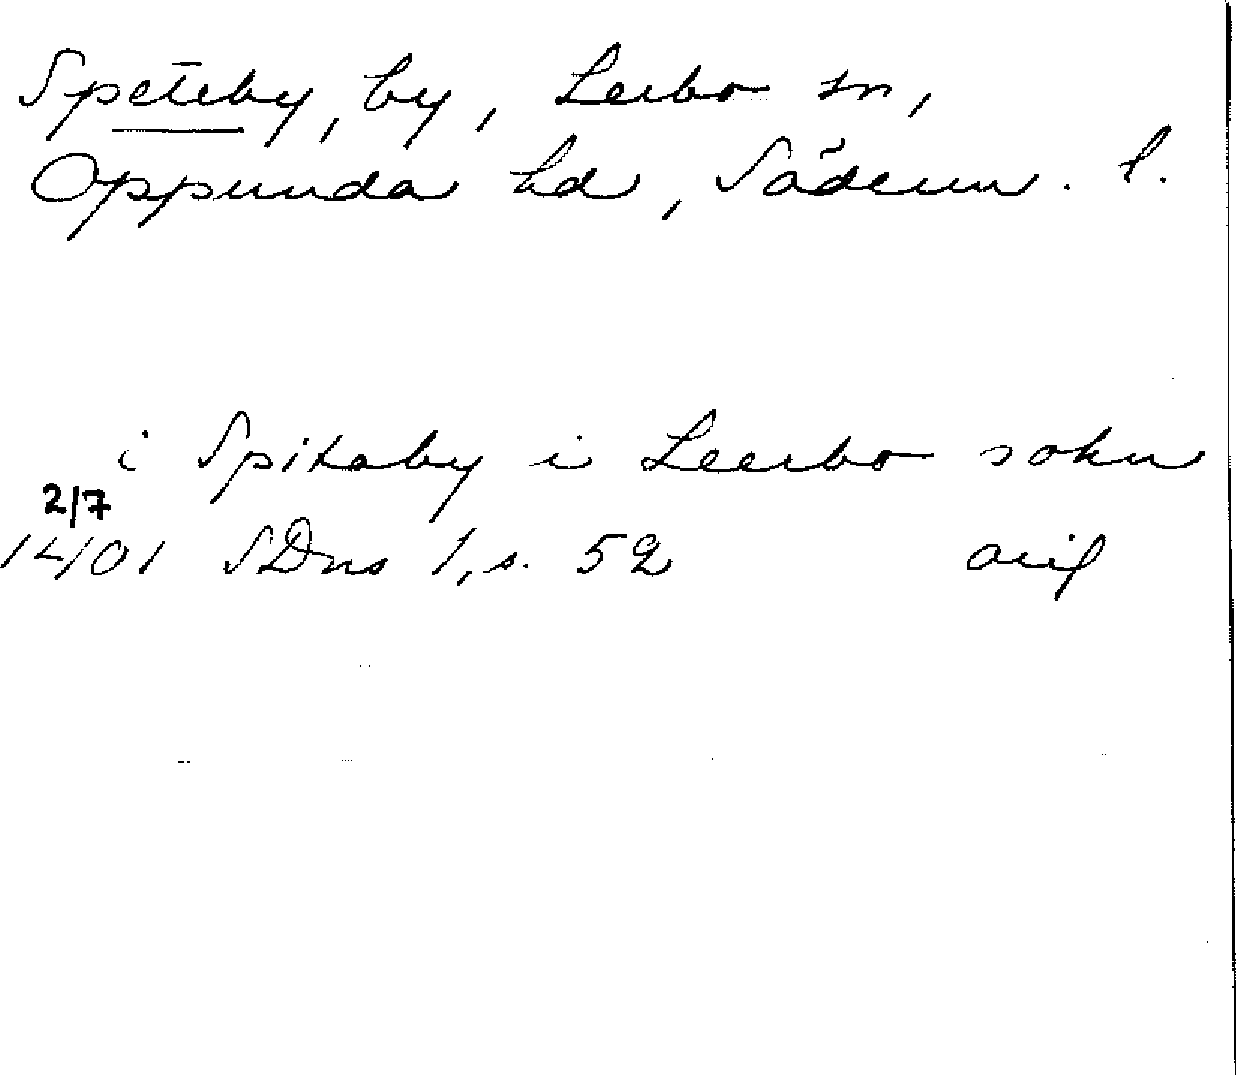 Speteby, by, Lerbo sn,
Oppunda hd, Söderm. l.
i Spitaby i Leerbo sokn
2/7
1401 SDns 1, s. 52 avif